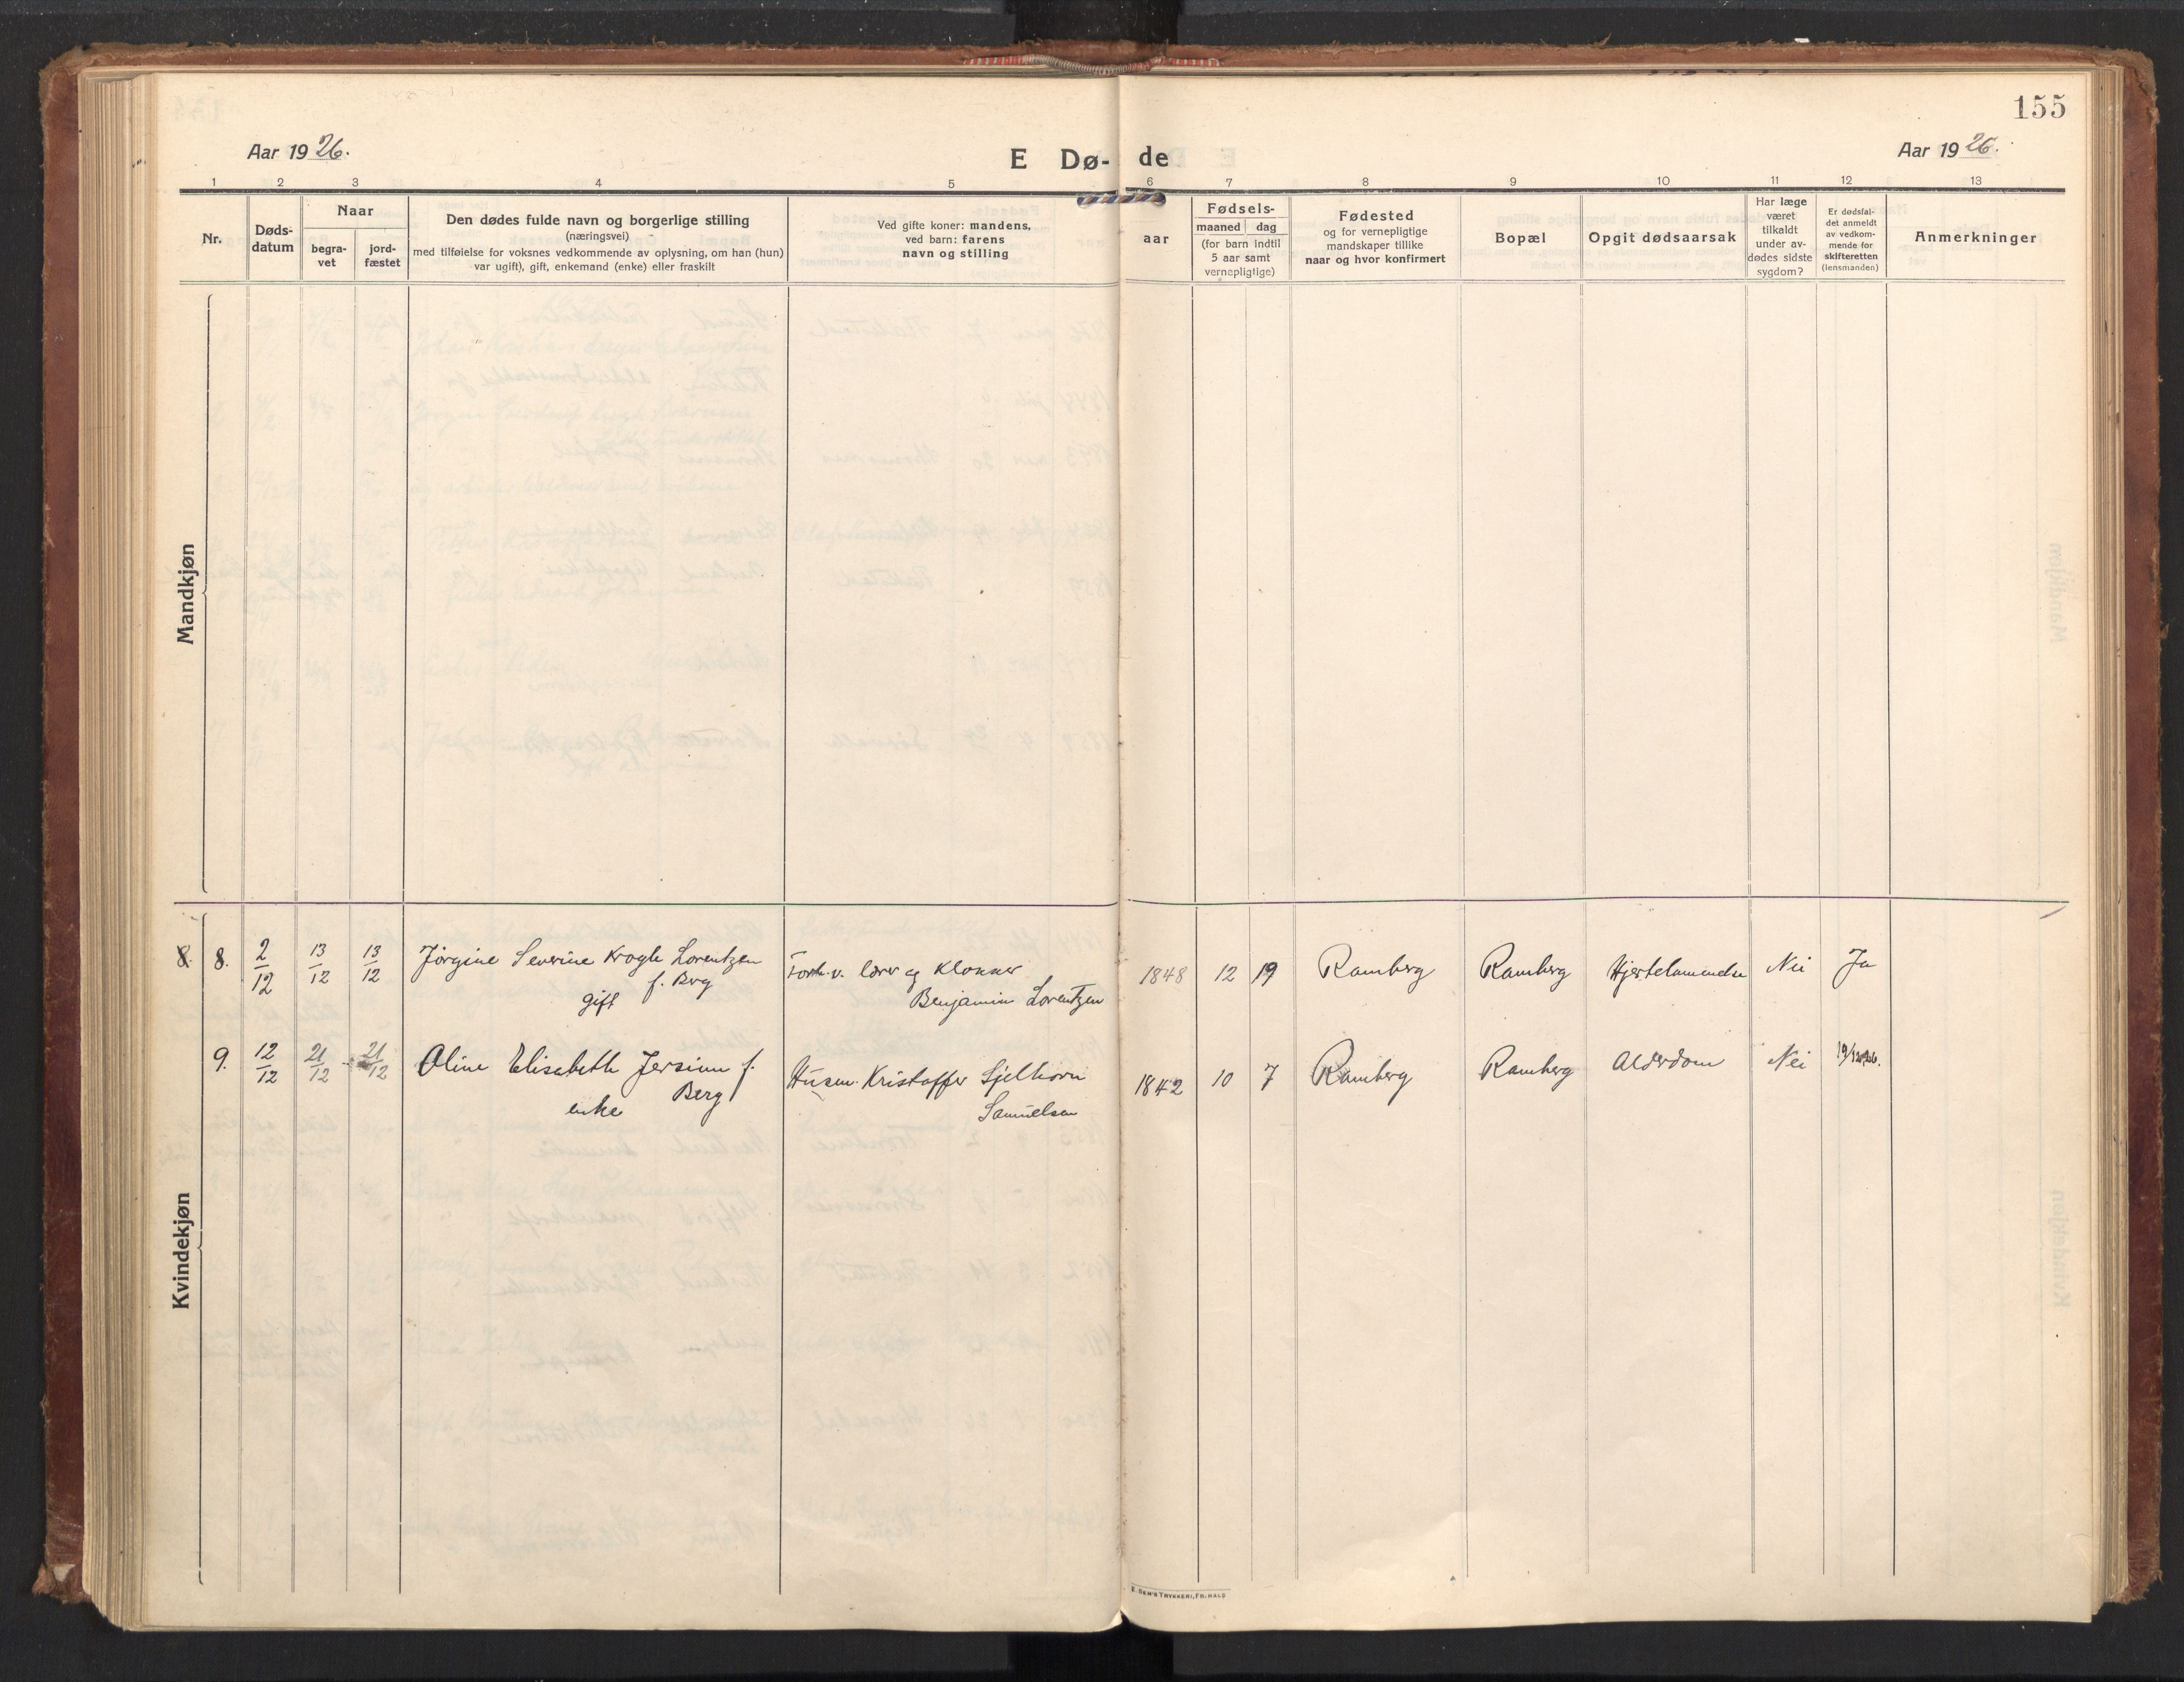 155
Aar 1926.
E Dø- de
Aar 1926.
1 2 3 4 5 6 7 8 9 10 11 12 13
Nr.
Døds-
datum
Naar
begra-
vet
jord-
fæstet
Den dødes fulde navn og borgerlige stilling
(næringsvei)
med tilføielse for voksnes vedkommende av oplysning, om han (hun)
var ugift), gift, enkemand (enke) eller fraskilt
Ved gifte koner: mandens,
ved barn: farens
navn og stilling
aar
Fødsels-
maaned dag
(for barn indtil
5 aar samt
vernepligtige)
Fødested
og for vernepligtige
mandskaper tillike
naar og hvor konfirmert
Bopæl
Opgit dødsaarsak
Har læge
været
tilkaldt
under av-
dødes sidste
sygdom?
Er dødsfal-
det anmeldt
av vedkom-
mende for
skifteretten
(lensmanden)
Anmerkninger
Mandkjøn
Kvindekjøn
8. 8. 2/12 13/12 13/12 Jörgine Severine Krogh Lorentzen
f. Berg
gift
Forh.v. lærer og Klokker
Benjamin Lorentzen
1848 12 19 Ramberg Ramberg Hjertelammelse Nei Ja
9. 12/12 21/12 21/12 Oline Elisabeth Jersinn f.
Berg
enke
Husm. Kristoffer Sjelhorn
Samuelsen
1842 10 7 Ramberg Ramberg Alderdom Nei 19/12 26.
E. Sem's Trykkeri, Fr.hald